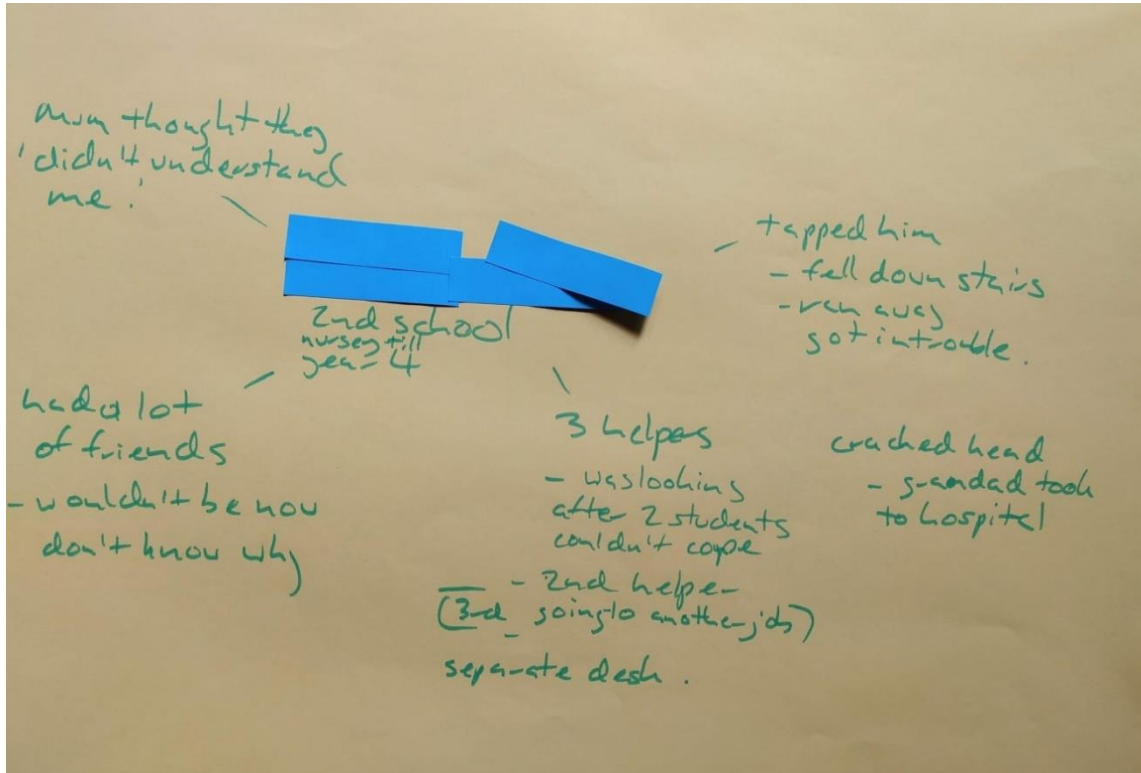 mum thought they
'didn't understand
me!
2nd school
nursey till
year 4
tapped him
- fell down stairs
- ran away
got in trouble.
had a lot
of friends
- wouldn't be now
don't know why
3 helpers
- was looking
after 2 students
couldn't cope
- 2nd helper
(3rd going to another job)
separate desk.
cracked head
- grandad took
to hospital